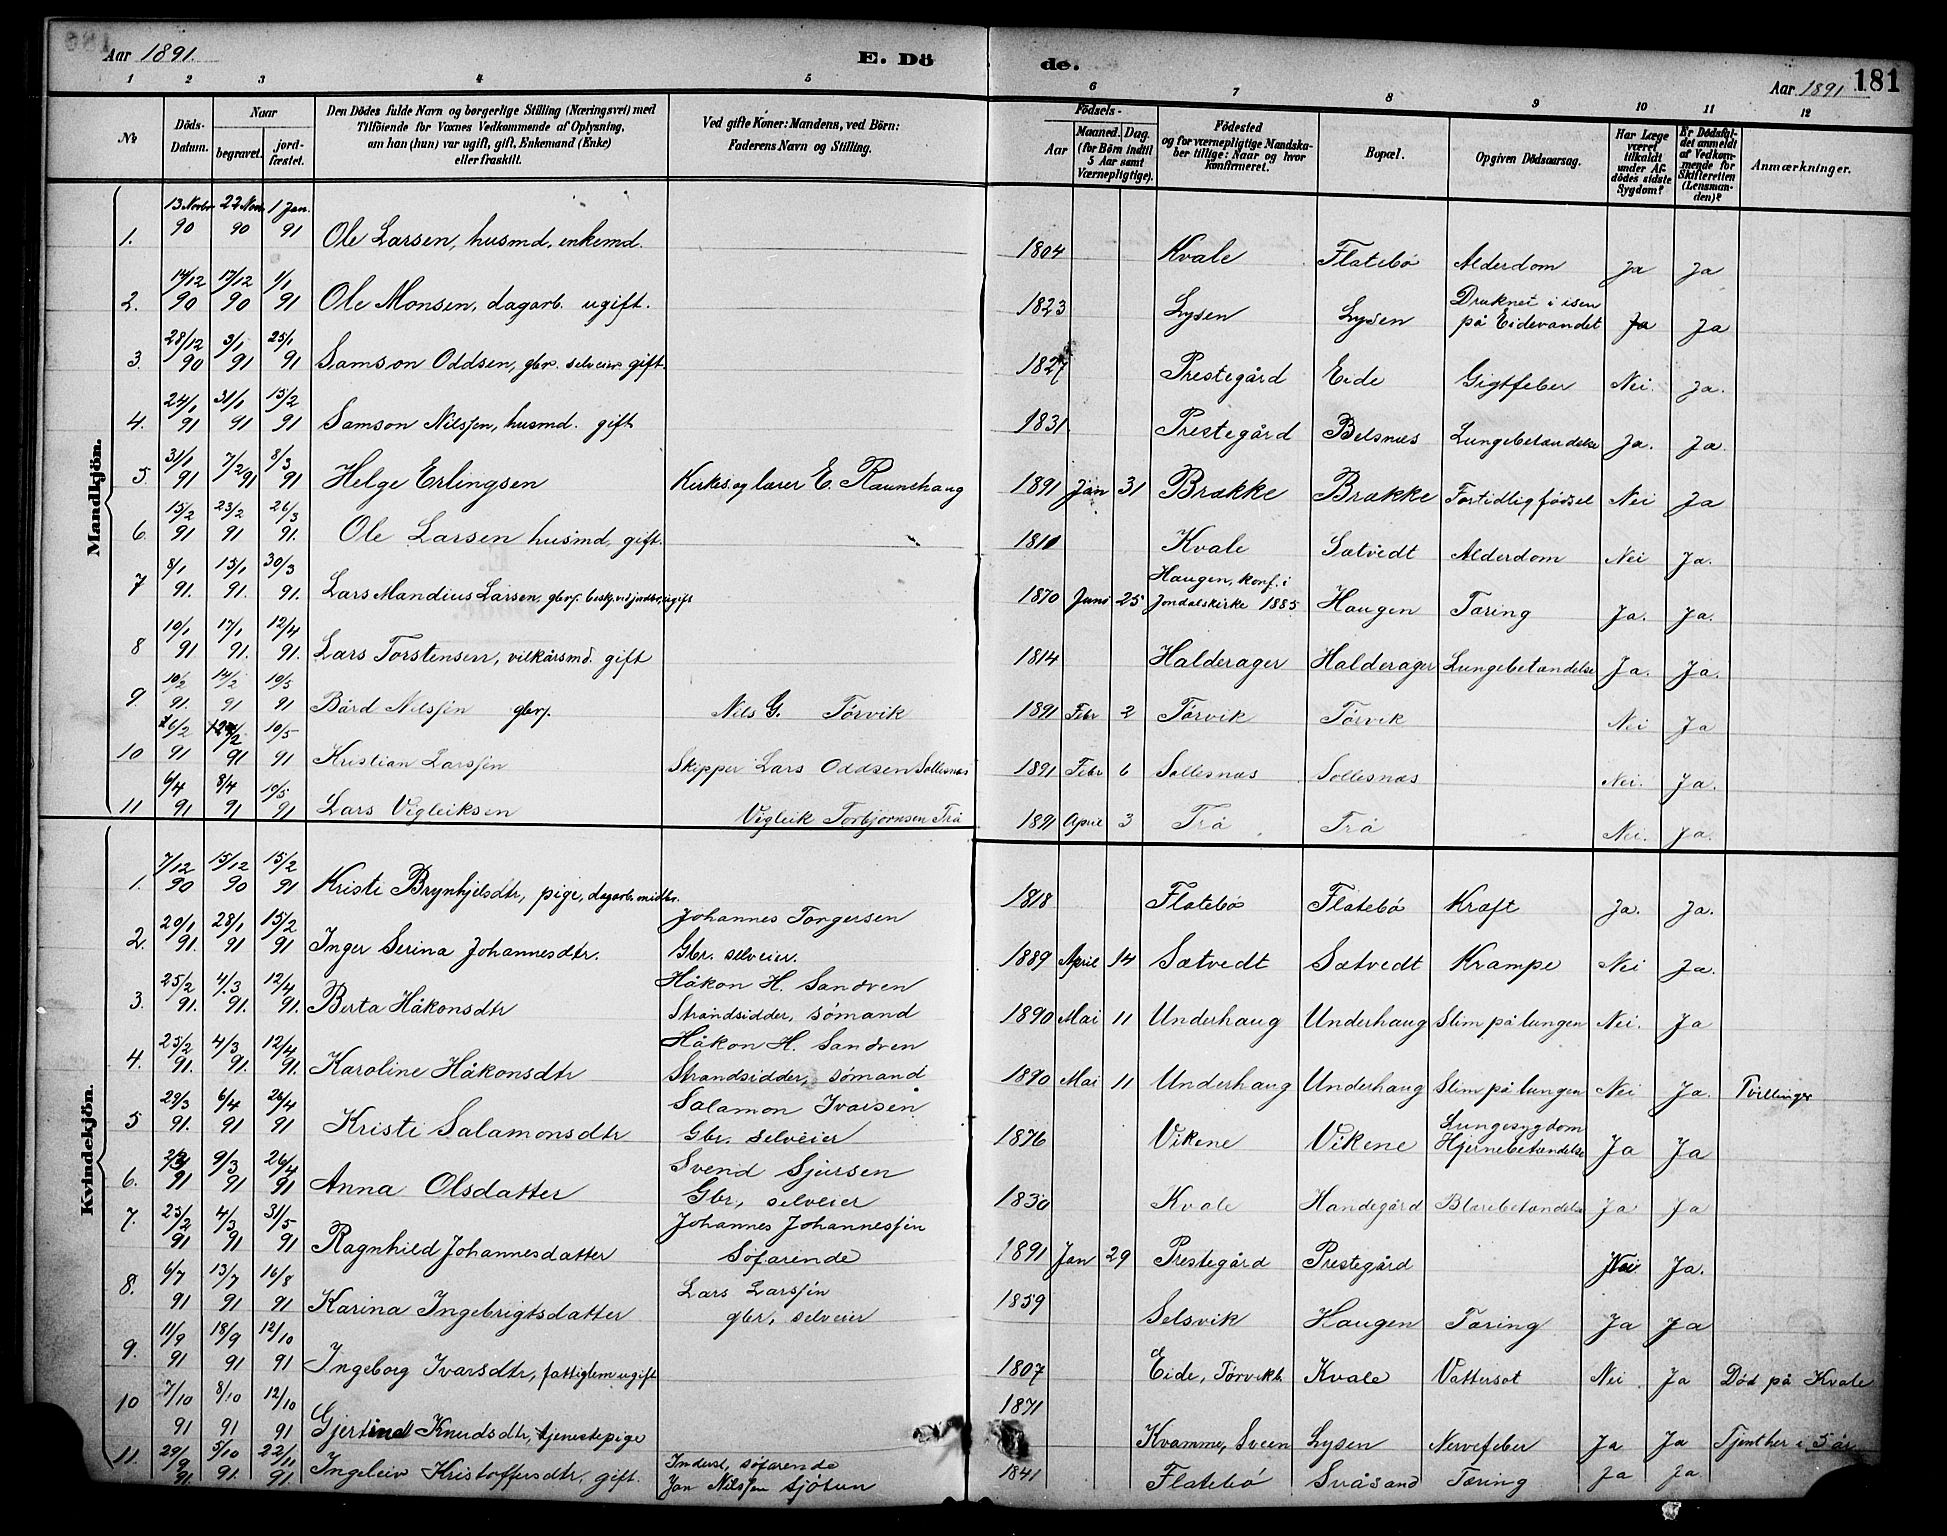 Aar 1891. E. Dö de. Aar 1891 181
1 2 3 4 5 6 7 8 9 10 11 12
No Döds-Datum. Naar begravet. jord-fæstet. Den Dödes fulde Navn og borgerlige Stilling (Næringsvei) med Tilföiende for Voxnes Vedkommende af Oplysning, om han (hun) var ugift, gift, Enkemand (Enke) eller fraskilt. Ved gifte Koner: Mandens, ved Börn: Faderens Navn og Stilling. Födsels- Aar Maaned. Dag. (for Börn indtil 5 Aar samt Værnepligtige). Födested og for værnepligtige Mandskaber tillige: Naar og hvor konfirmeret. Bopæl. Opgiven Dödsaarsag. Har Læge været tilkaldt under Afdödes sidste Sygdom? Er Dödsfaldet anmeldt af Vedkommende for Skifteretten (Lensmanden)? Anmærkninger.
Mandkjön.
1. 13 Novbr 90 22 Nov. 90 1 Jan. 91 Ole Larsen, husmd. enkemd. 1804 Kvale Flatebö Alderdom Ja Ja
2. 14/12 90 17/12 90 1/1 91 Ole Monsen, dagarb. ugift. 1823 Lysen Lysen Druknet i isen på Eidevandet Ja Ja
3. 28/12 90 3/1 91 25/1 91 Samson Oddsen, gbr. selveier gift. 1827 Prestegård Eide Gigtfeber Nei Ja.
4. 24/1 91 31/1 91 15/2 91 Samson Nilssen, husmd. gift 1831 Prestegård Belsnæs Lungebetændelse Ja. Ja
5 31/1 91 7/2 91 8/3 91 Helge Erlingsen Kirkes. og lærer E. Raunehaug 1891 Jan 31 Brække Brække Fortidlig födsel Nei Ja
6. 15/2 91 23/2 91 26/3 91. Ole Larsen husmd, gift. 1810 Kvale Sætvedt Alderdom Nei Ja.
7 8/1 91. 15/1 91. 30/3 91. Lars Mandius Larsen, ugift 1870 Juni 25 Haugen, konf. i Jondals kirke 1885 Haugen Tæring Ja. Ja.
8 10/1 91 17/1 91. 12/4 91. Lars Torstensen, vilkårsmd. gift 1814 Halderager Halderager Lungebetændelse Ja. Ja.
9. 10/2 91. 14/2 91 10/5 91 Bård Nilssen gbrs. Nils G. Törvik 1891 Febr 2 Törvik Törvik Nei Ja
10 6/2 91 12/2 91 10/5 91 Kristian Larssen Skipper Lars Oddsen Sollesnæs 1891 Febr 6 Sollesnæs Sollesnæs Nei. Ja.
11 6/4 91 8/4 91 10/5 91 Lars Vigleiksen Vigleik Torbjörnsen Trå 1891 April 3 Trå Trå Nei. Ja.
Kvindekjön.
1. 7/12 90 15/12 90 15/2 91 Kristi Brynhjelsdtr, pige, dagarb. 1818 Flatebö Flatebö Kræft Ja. Ja.
2. 20/1 91. 28/1 91 15/2 91 Inger Serina Johannesdtr. Johannes Torgersen Gbr. selveier. 1889 April 14 Sætvedt Sætvedt Krampe Nei Ja.
3. 25/2 91. 4/3 91. 12/4 91. Berta Håkonsdtr Håkon H. Sandven Strandsidder, sömand 1890 Mai 11 Underhaug Underhaug Slim på lungen Nei. Ja
4. 25/2 91. 4/3 91. 12/4 91. Karoline Håkonsdtr Håkon H. Sandven Strandsidder, sömand 1890 Mai 11 Underhaug Underhaug Slim på lungen Nei Ja. Tvillinger
5 29/3 91. 6/4 91 26/4 91 Kristi Salamonsdtr Salamon Ivarsen Gbr. selveier 1876 Vikene Vikene Lungesygdom Hjernebetændelse Ja Ja
6. 2/3 91 9/3 91 26/4 91 Anna Olsdatter Svend Sjursen Gbr, selveier 1830 Kvale Handegård Blærebetændelse Ja Ja
7. 25/2 91 4/3 91 31/5 91 Ragnhild Johannesdatter Johannes Johannessen Söfarende 1891 Jan 29 Prestegård Prestegård Nei Ja.
8. 6/7 91 13/7 91 16/8 91 Karina Ingebrigtsdatter Lars Larssen gbr, selveier 1859 Selsvik Haugen Tæring Ja Ja
9. 11/9 91 18/9 91 12/10 91 Ingeborg Ivarsdtr, fattiglem ugift 1807 Eide, Törvikb. Kvale Vattersot Nei Ja Död på Kvale
10 7/10 91 8/10 91 12/10 91 Gjertrud Knudsdtr, tjenestepige 1871 Kvamme, Sveen Lysen Nervefeber Ja Ja Tjent her i 5 år
11. 29/9 91. 5/10 91. 22/11 91. Ingeleiv Kristoffersdtr, gift. Inderst, söfarende Jan Nilssen Sjötun 1841 Flatebö Svåsand Tæring Ja Ja